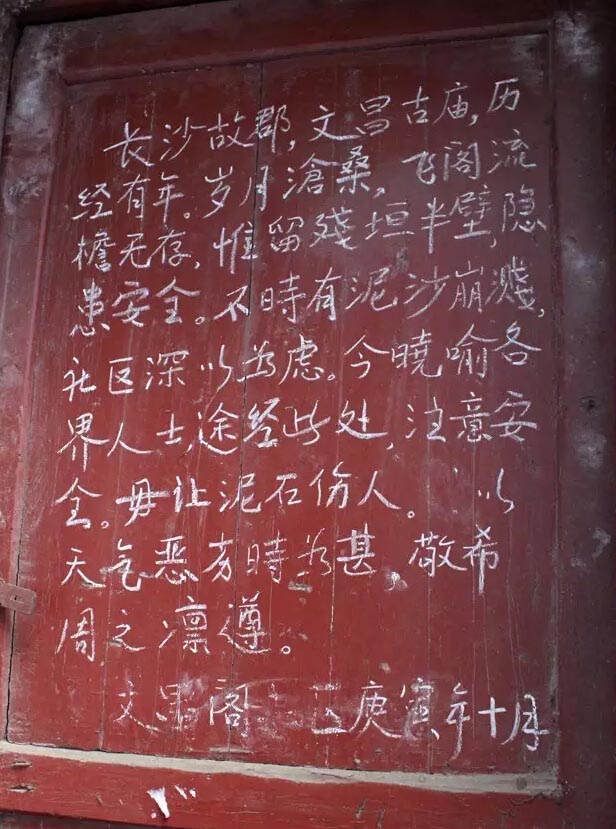 长沙故郡，文昌古庙，历
经有年。岁月滄桑，飞阁流
檐无存，惟留残垣半壁，隐
患安全。不時有泥沙崩溅，
社区深以为虑。今曉喻各
界人士，途经此处，注意安
全。毋让泥石伤人。以
天气恶劣時为甚，敬希
周之凛遵。
文昌阁 庚寅年十月